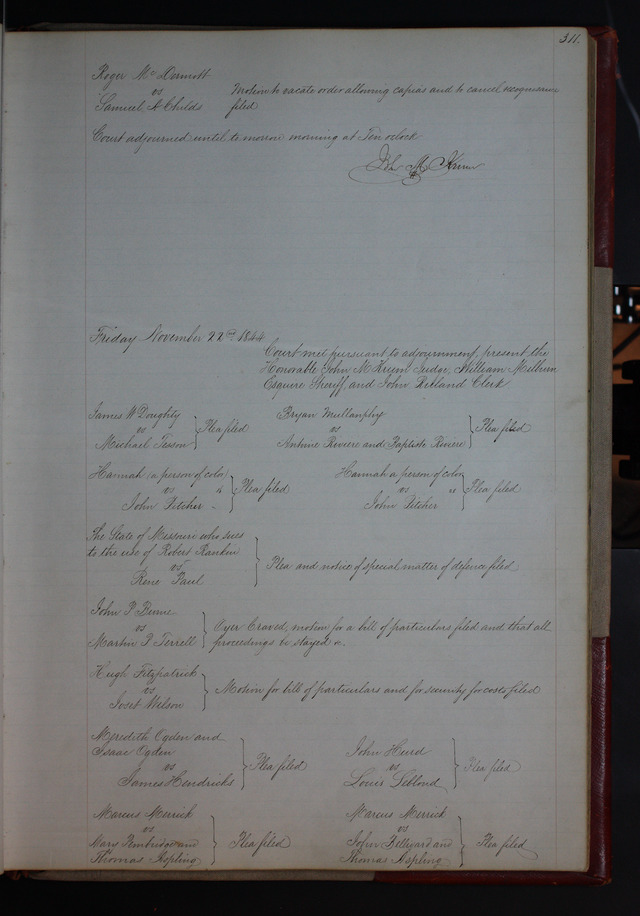 311.
Roger McDermott
vs
Samuel A Childs
Motion to vacate order allowing capias and to cancel recognisance
filed
Court adjourned until to morrow morning at Ten oclock
John M Krum
Friday November 22nd 1844
Court met pursuant to adjournment, present the
Honorable John M Krum Judge, William Milburn
Esquire Sheriff and John Ruland Clerk
James W Doughty
vs
Michael Tesson
Plea filed
Bryan Mullanphy
vs
Antoine Riviere and Baptiste Riviere
Plea filed
Hannah (a person of color)
vs "
John Pitcher "
Plea filed
Hannah a person of color
vs "
John Pitcher
Plea filed
The State of Missouri who sues
to the use of Robert Rankin
vs
Rene Paul
Plea and notice of special matter of defence filed
John P Beirne
vs
Martin P Terrell
Oyer Craved, motion for a bill of particulars filed and that all
proceedings be stayed &c.
Hugh Fitzpatrick
vs
Wilson
Motion for bill of particulars and for security for costs filed
Meredith Ogden and
Isaac Ogden
vs
James Hendricks
Plea filed
John Hurd
vs
Louis Leblond
Plea filed
Marcus Merrick
vs
Mary and
Thomas Aspling
Plea filed
Marcus Merrick
vs
John Hillyard and
Thomas Aspling
Plea filed